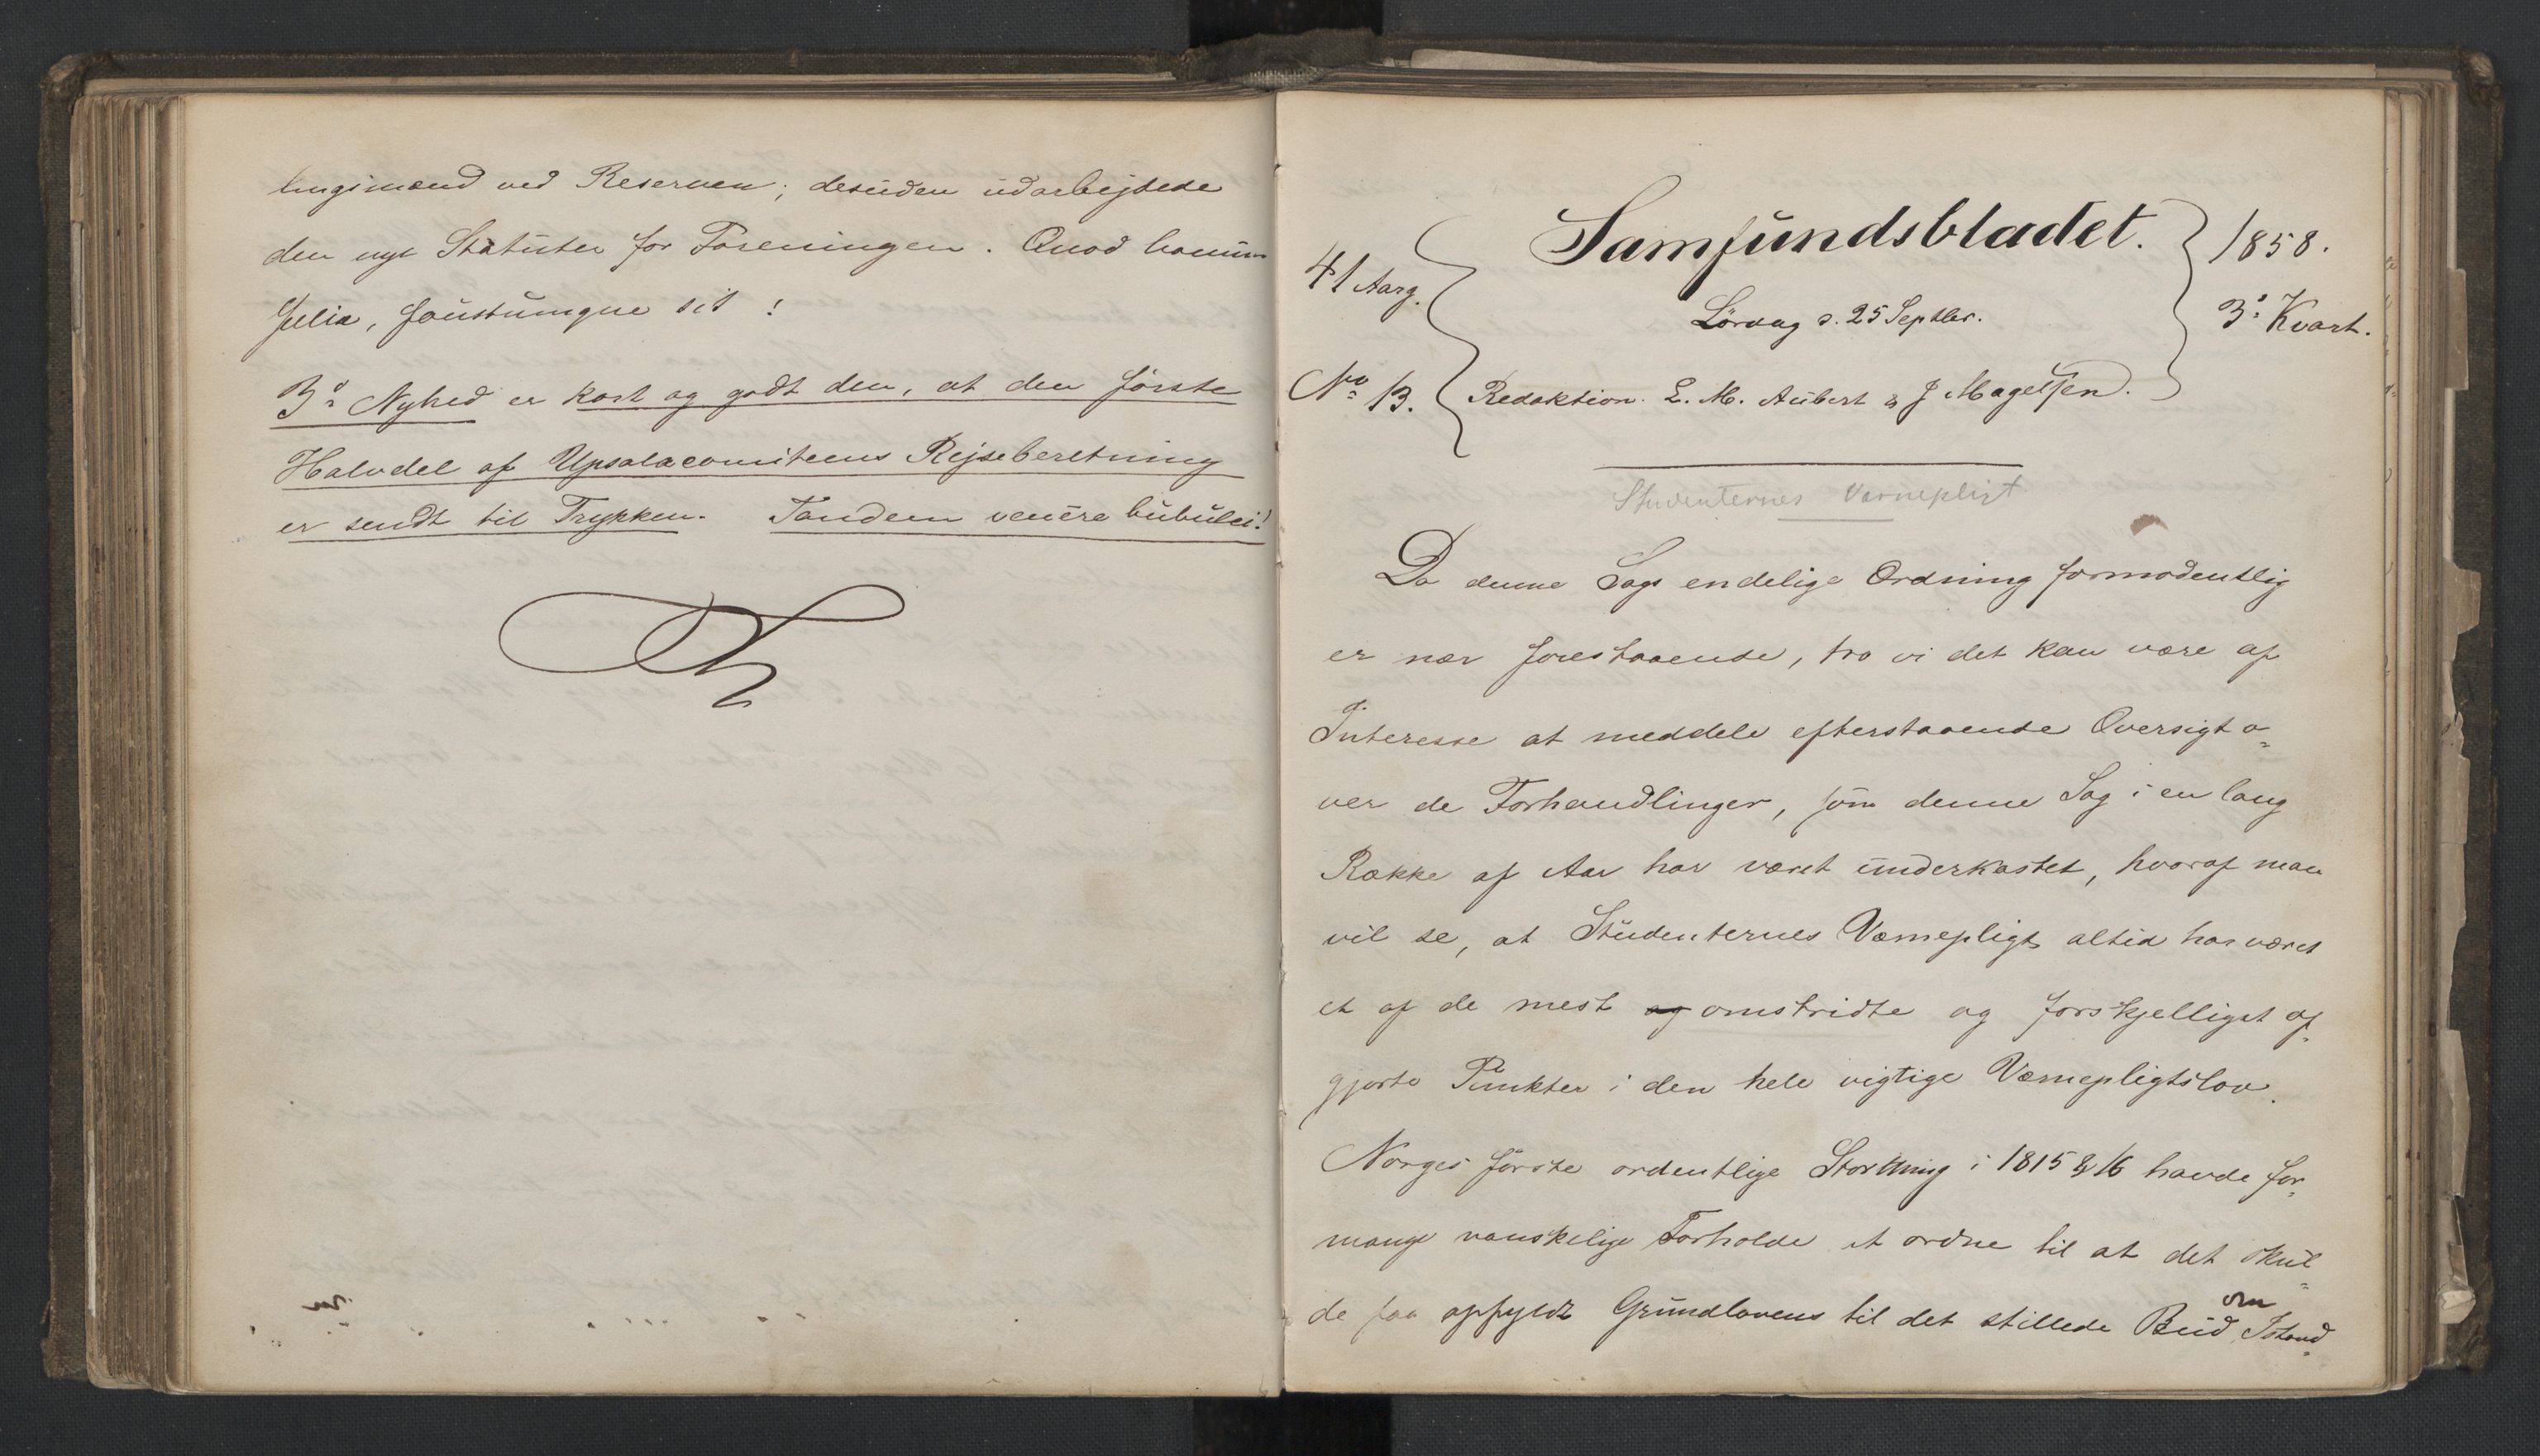 lingsmænd ved Reserven; desuden udarbejdede
den nye Statuter for Foreningen. Quod bonum
felix, faustumque sit!
3º Nyhed er kort og godt den, at den første
Halvdel af Upsalacomiteens Rejseberetning
er sendt til Trykken. Tandem venere bubulci!
Samfundsbladet.
41 Aarg.
1858.
Lördag d. 25 Septbr.
3º Kvart.
No 13.
Redaktion. L. M. Aubert & J Magelssen.
Studenternes Værnepligt
Da denne Sags endelige Ordning formodentlig
er nær forestaaende, tro vi det kan være af
Interesse at meddele efterstaaende Oversigt o=
ver de Forhandlinger, som denne Sag i en lang
Række af Aar har været underkastet, hvoraf man
vil se, at Studenternes Værnepligt altid har været
et af de mest og omstridte og forskjelligst af=
gjorte Punkter i den hele vigtige Værnepligtslov.
Norges første ordentlige Storthing i 1815 & 16 havde for
mange vanskelige Forholde at ordne til at det skul=
de faa opfyldt Grundlovens til det stillede Bud om Istand=